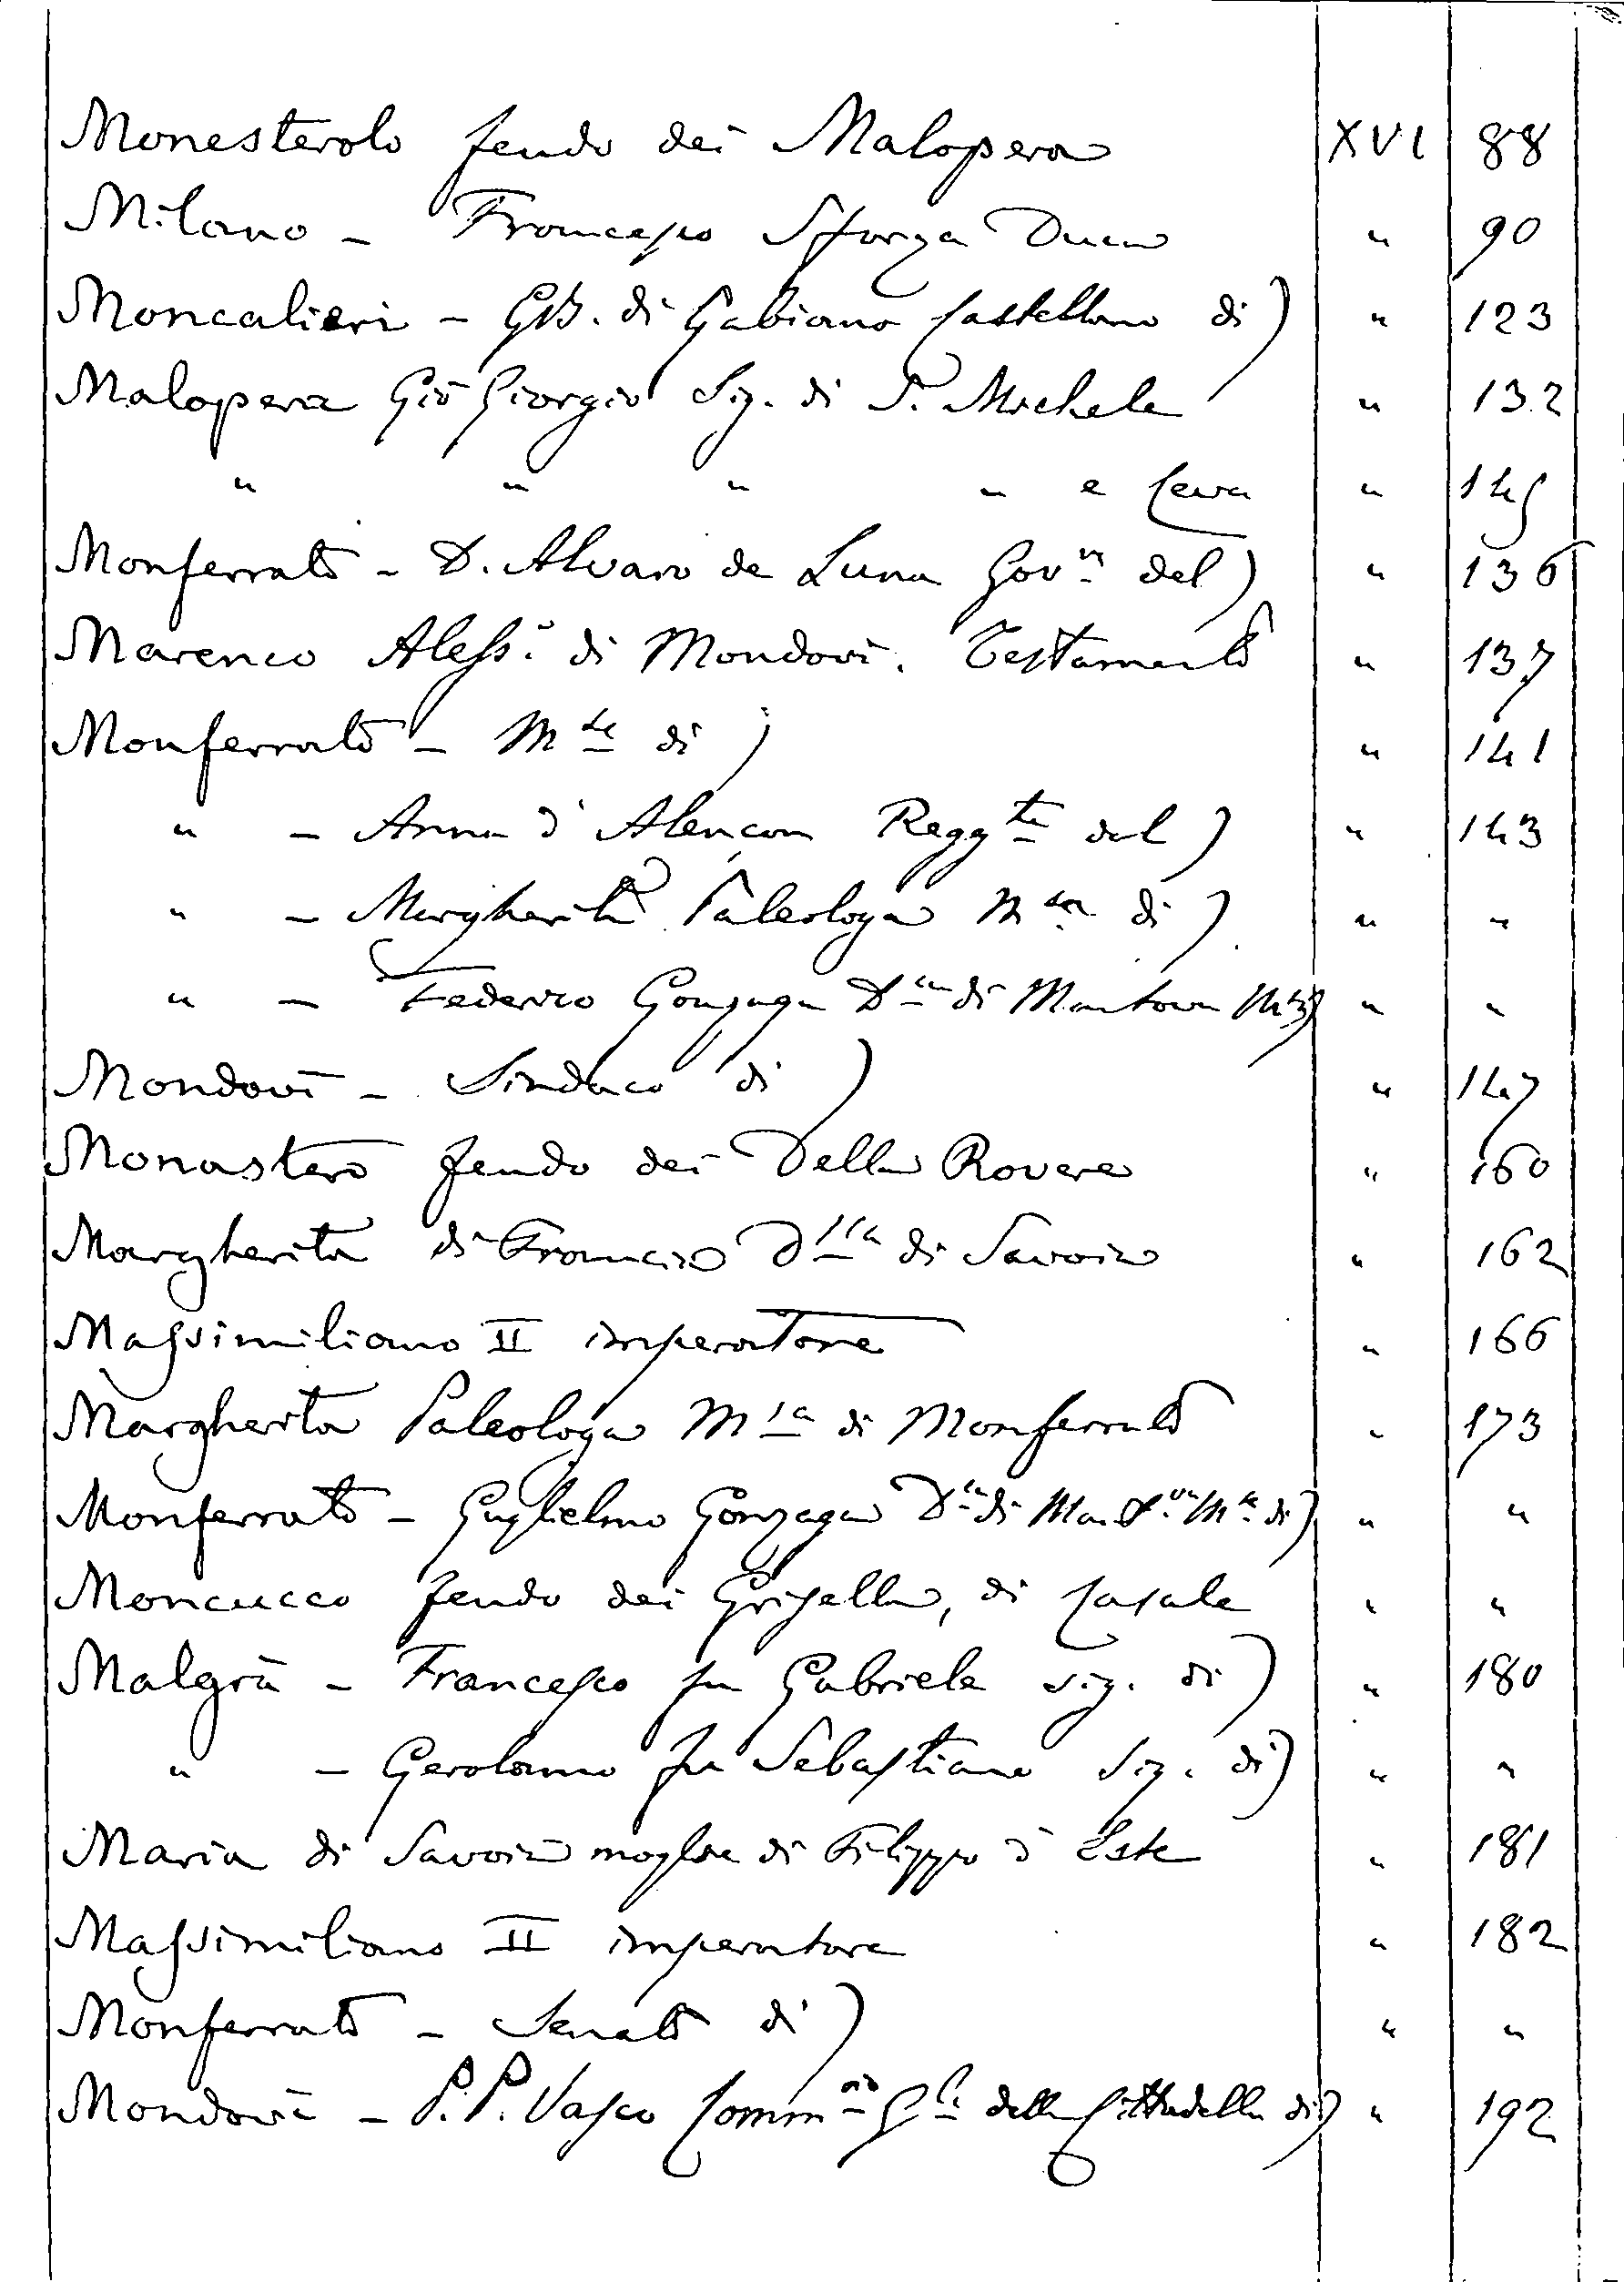 Monesterolo feudo dei Malopera XVI 88
Milano - Francesco Sforza Duca " 90
Moncalieri - GB. di Gabiano Castellano di) " 123
Malopera Giō Giorgio Sig. di S. Michele " 132
" " " " e Ceva " 145
Monferrato - D. Alvaro de Luna Gov.re del) " 136
Marenco Aless.o di Mondovì. Testamento " 137
Monferrato - M.se di) " 141
" - Anna d'Alençon Regg.te del) " 143
" - Margherita Paleologa M.sa di) " "
" - Federico Gonzaga D.ca di Mantova M.se di) " "
Mondovì - Sindaco di) " 147
Monastero feudo dei Della Rovere " 160
Margherita di Francia D.ssa di Savoia " 162
Massimiliano II imperatore " 166
Margherita Paleologa M.sa di Monferrato " 173
Monferrato - Guglielmo Gonzaga D.ca di Mant.va M.se di) " "
Moncucco feudo dei Grisella, di Casale " "
Malgrà - Francesco fu Gabriele sig. di) " 180
" - Gerolamo fu Sebastiano Sig. di) " "
Maria di Savoia moglie di Filippo d'Este " 181
Massimiliano II imperatore " 182
Monferrato - Senato di) " "
Mondovì - P. P. Vasco Comm.rio G.le della Cittadella di) " 192